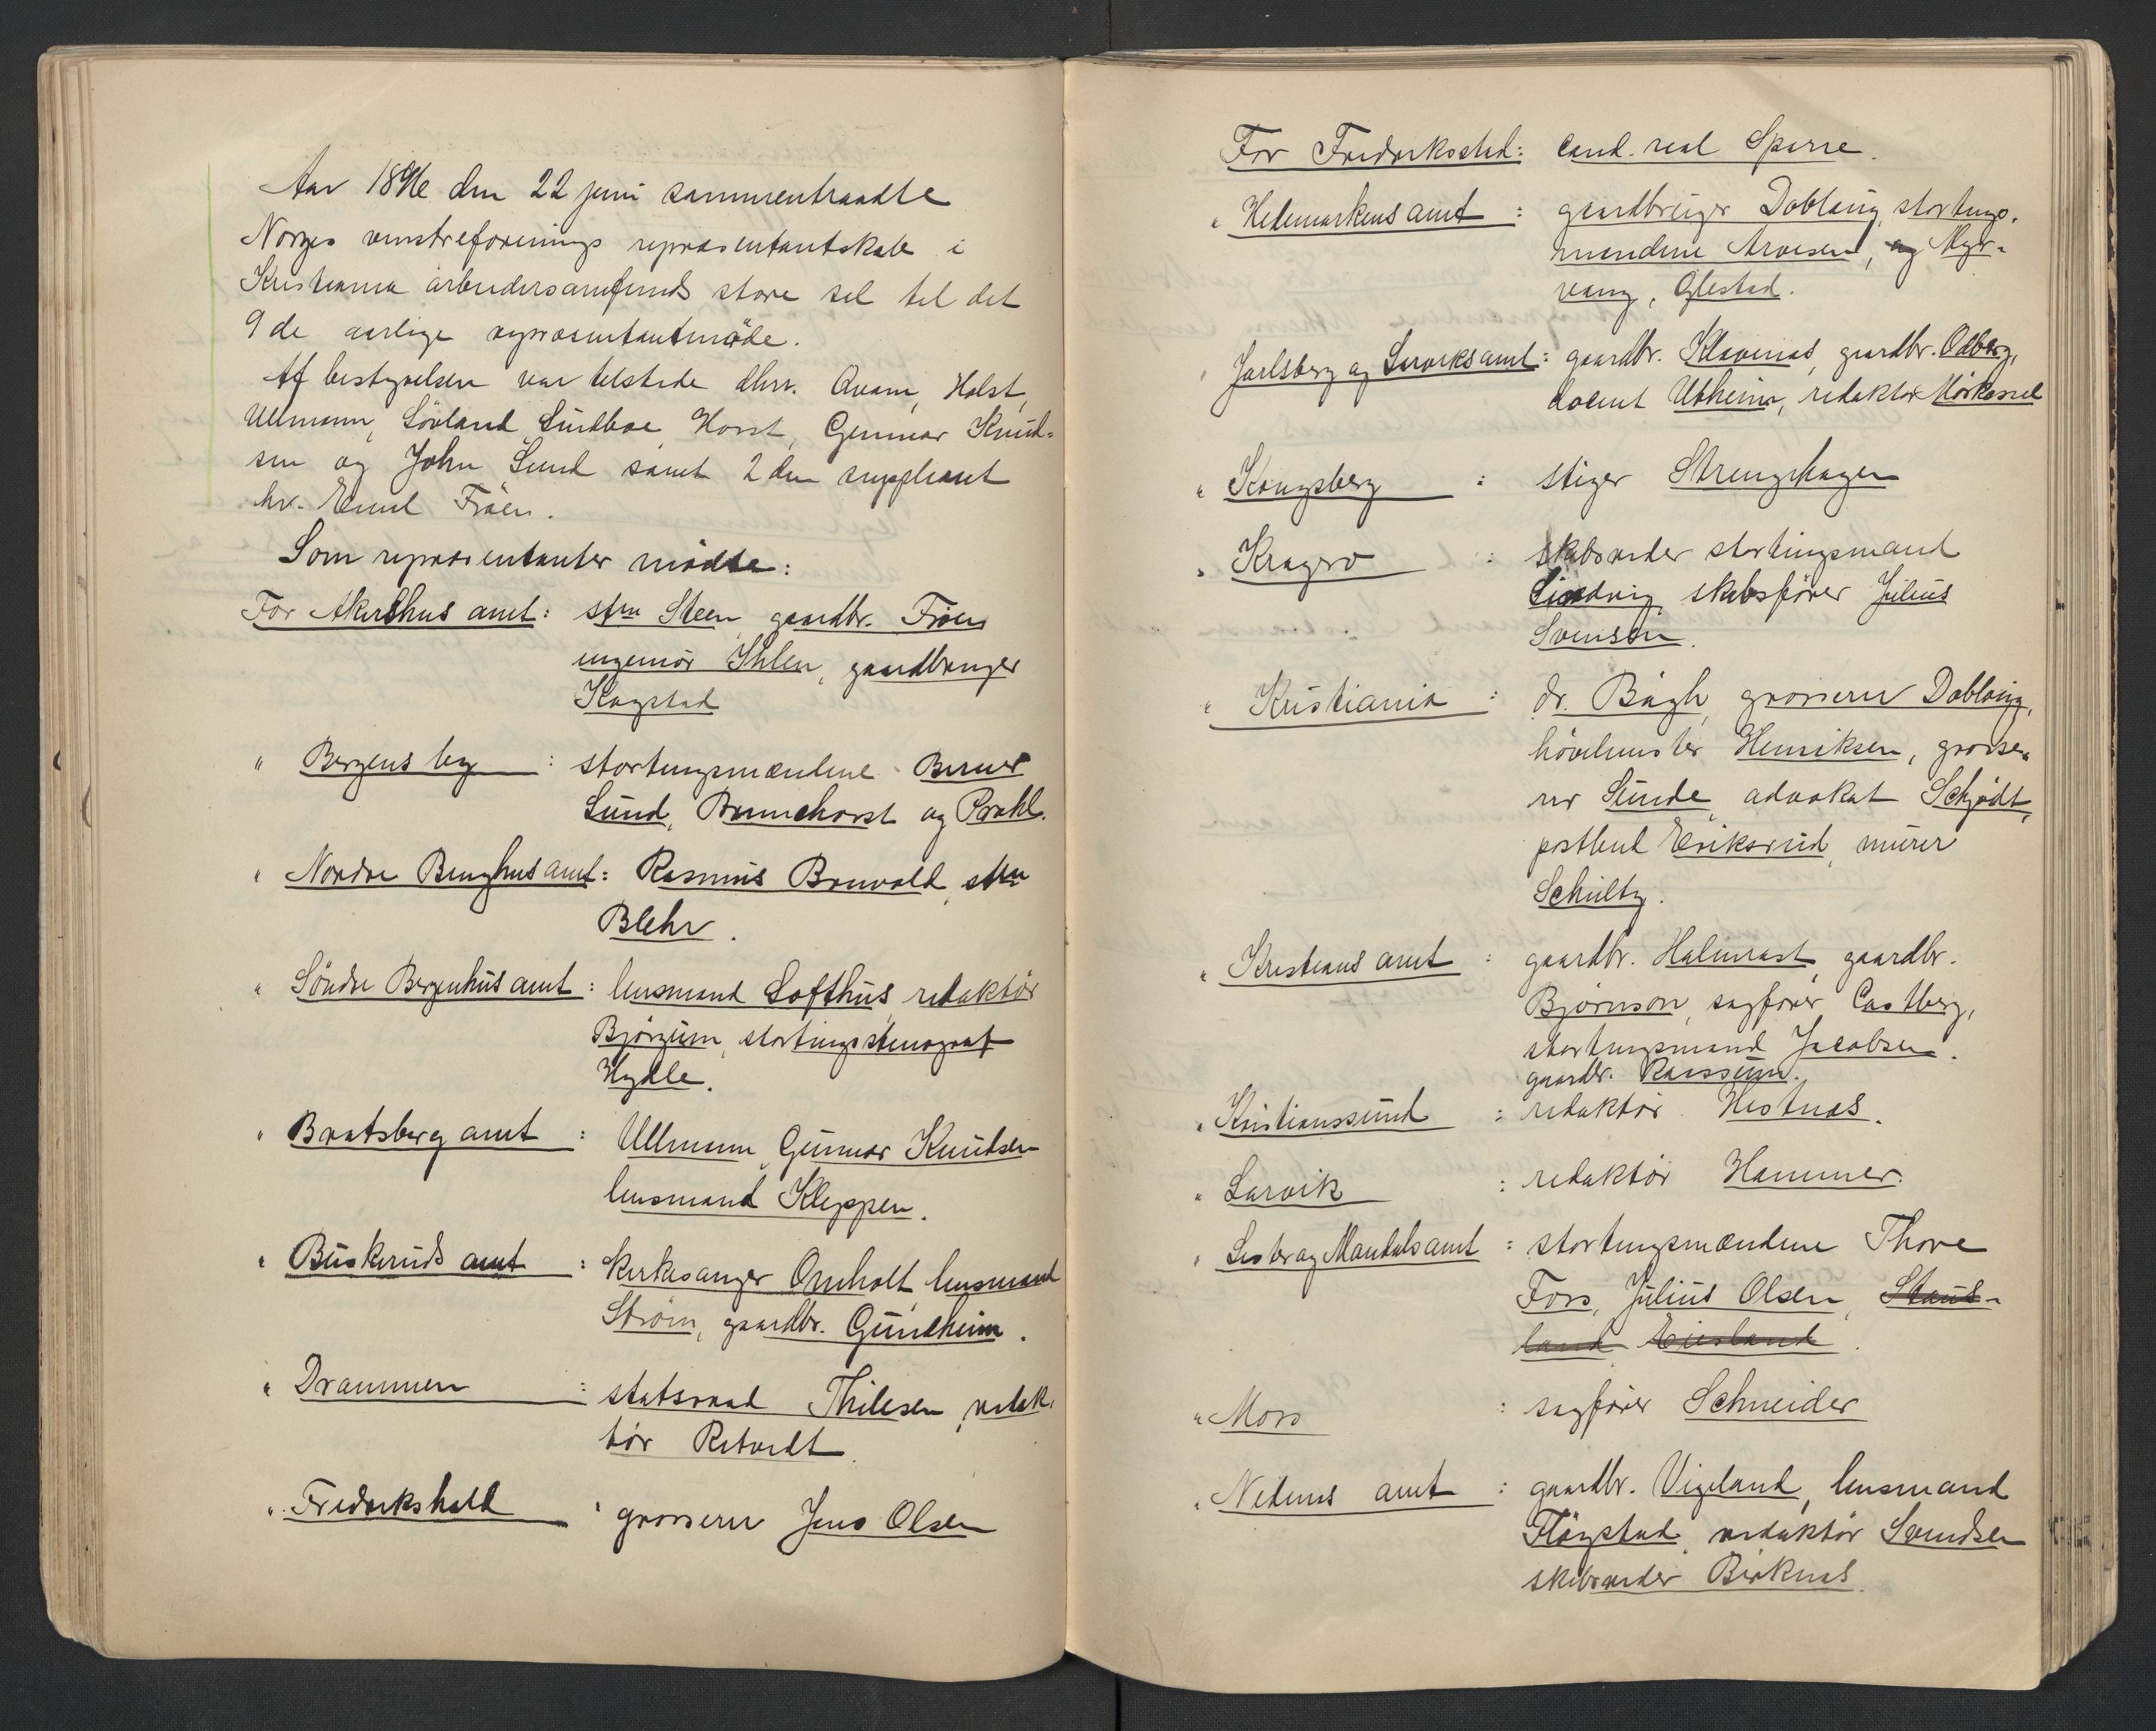 Aar 1896 den 22 juni sammentraadte
Norges venstreforenings repræsentantskab i
Kristiania arbeidersamfunds store sal til det
9de aarlige repræsentantmöde.
Af bestyrelsen var tilstede dhrr. Qvam, Holst,
Ullmann, Lövland, Lindboe, Horst, Gunnar Knud-
sen og John Lund samt 2den suppleant
hr. Emil Fröen.
Som repræsentanter mödte:
For Akershus amt: strm Steen, gaardbr. Fröen
ingeniör Ihlen, gaardbruger
Kogstad
" Bergens by : stortingsmændene Berner
Lund, Brunchorst og Prahl.
" Nordre Bergenhus amt: Rasmus Brunvold, strm
Blehr.
" Söndre Bergenhus amt: lensmand Lofthus, redaktör
Björgum, stortingsstenograf
Hydle.
" Bratsberg amt : Ullmann, Gunnar Knudsen
lensmand Kleppen.
" Buskeruds amt : kirkesanger Omholt, lensmand
Ström, gaardbr. Gundheim.
" Drammen : statsraad Thilesen, redak-
tör Retvedt.
" Fredrikshald : grosserer Jens Olsen
For Fredrikstad: cand. real Sparre.
" Hedemarkens amt : gaardbruger Dobloug, stortings-
mændene Arvesen, og Myr-
vang, Glestad.
" Jarlsberg og Larviks amt: gaardbr. Klavenes, gaardbr. Odberg,
docent Utheim, redaktör Mörkassel
" Kongsberg : stiger Strengehagen
" Kragerö : skibsreder stortingsmand
Lindvig, skibsförer Julius
Svensen.
" Kristiania : dr. Bugh, grosserer Dobloug,
hövelmester Henriksen, grosse-
rer Sunde, advokat Schjödt,
postbud Eriksrud, murer
Schultz.
" Kristians amt : gaardbr. Halmrast, gaardbr.
Björnson, sagförer Castberg,
stortingsmand Jacobsen.
gaardbr. Raossum.
" Kristianssund : redaktör Hestnæs.
" Larvik : redaktör Hammer.
" Lister og Mandals amt : stortingsmændene Thore
Foss, Julius Olsen, Staus-
land Eiesland.
" Moss : sagförer Schneider
" Nedenes amt : gaardbr. Vigeland, lensmand
Flögstad, redaktör Svendsen
skibsreder Birknes.